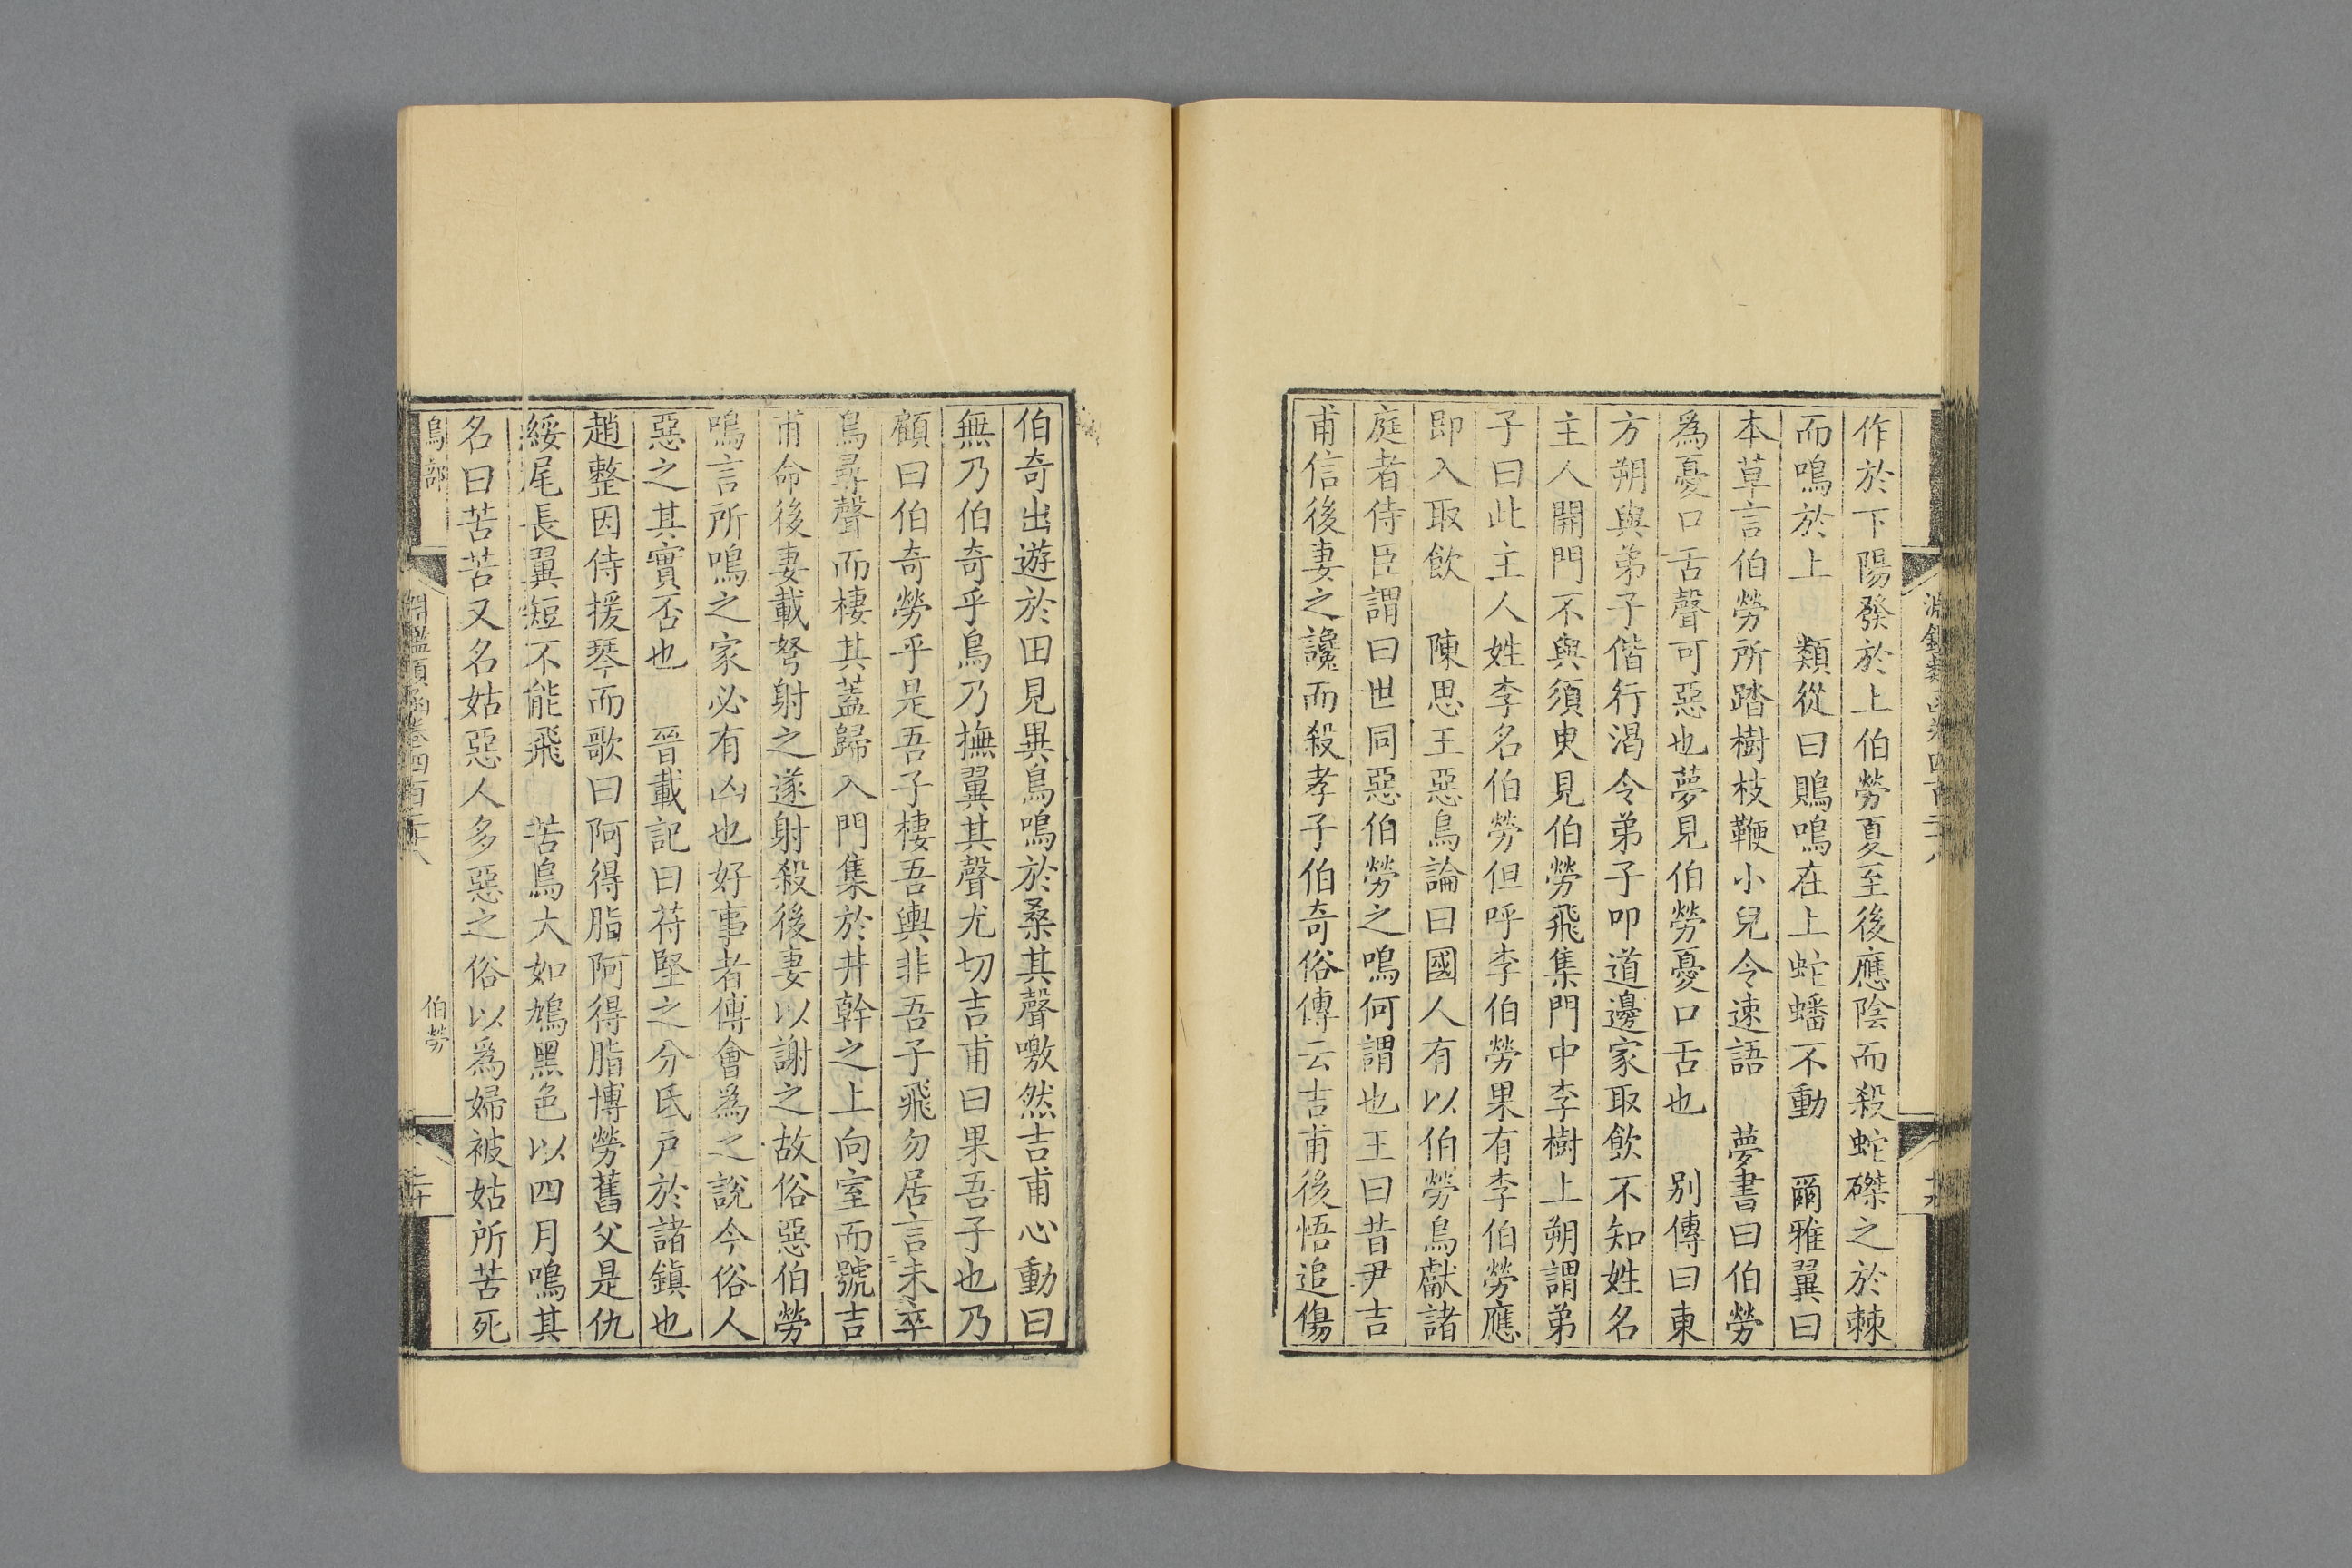 作於下陽發於上伯勞夏至後應陰而殺蛇磔之於棘
而鳴於上　類從曰鵙鳴在上蛇蟠不動　爾雅翼曰
本草言伯勞所踏樹枝鞭小兒令速語　夢書曰伯勞
爲憂口舌聲可惡也夢見伯勞憂口舌也　別傳曰東
方朔與弟子偕行渴令弟子叩道邊家取飲不知姓名
主人開門不與須臾見伯勞飛集門中李樹上朔謂弟
子曰此主人姓李名伯勞但呼李伯勞果有李伯勞應
即入取飲　陳思王惡鳥論曰國人有以伯勞鳥獻諸
庭者侍臣謂曰世同惡伯勞之鳴何謂也王曰昔尹吉
甫信後妻之讒而殺孝子伯奇俗傳云吉甫後悟追傷
伯奇出遊於田見異鳥鳴於桑其聲噭然吉甫心動曰
無乃伯奇乎鳥乃撫翼其聲尤切吉甫曰果吾子也乃
顧曰伯奇勞乎是吾子棲吾輿非吾子飛勿居言未卒
鳥尋聲而棲其蓋歸入門集於井幹之上向室而號吉
甫命後妻載弩射之遂射殺後妻以謝之故俗惡伯勞
鳴言所鳴之家必有凶也好事者傳會爲之說今俗人
惡之其實否也　晉載記曰苻堅之分氐戶於諸鎭也
趙整因侍援琴而歌曰阿得脂阿得脂博勞舊父是仇
綏尾長翼短不能飛　苦鳥大如鳩黑色以四月鳴其
名曰苦苦又名姑惡人多惡之俗以爲婦被姑所苦死
鳥部　淵鑑類函卷四百二十八　伯勞　二十